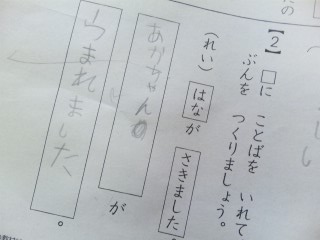 【2】 □に ことばを いれて
ぶんを つくりましょう。
(れい) はな が さきました。
あかちゃん が
うまれました。